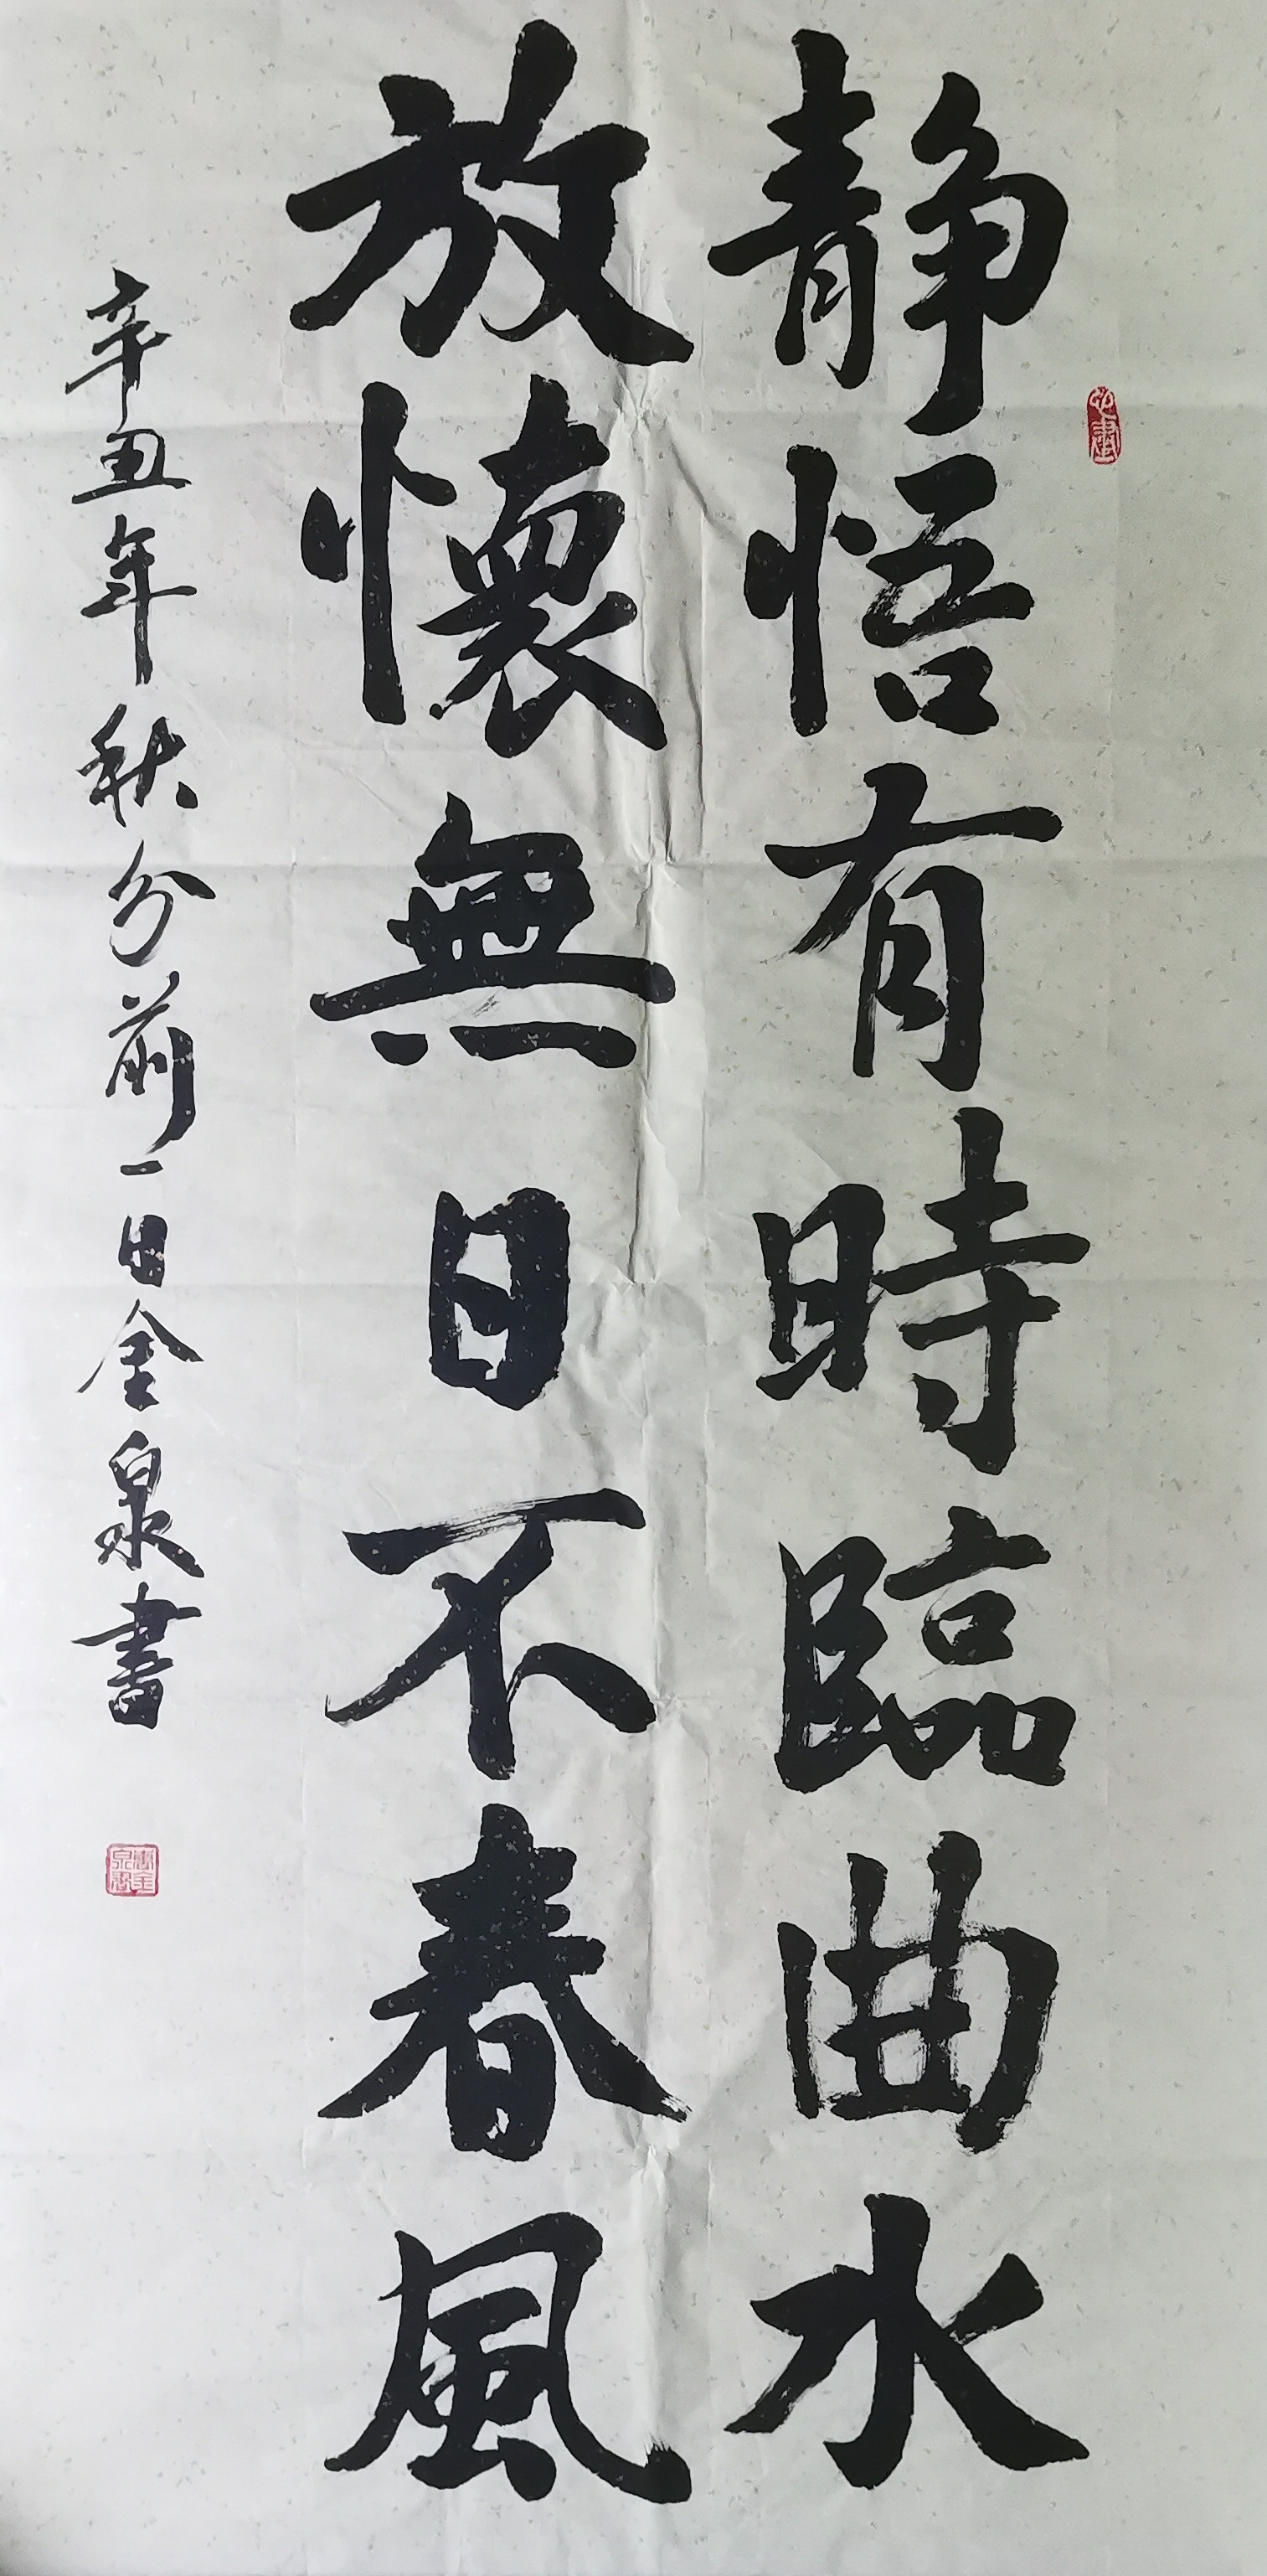 静悟有時臨曲水
放懷無日不春風
辛丑年秋分前一日金泉書